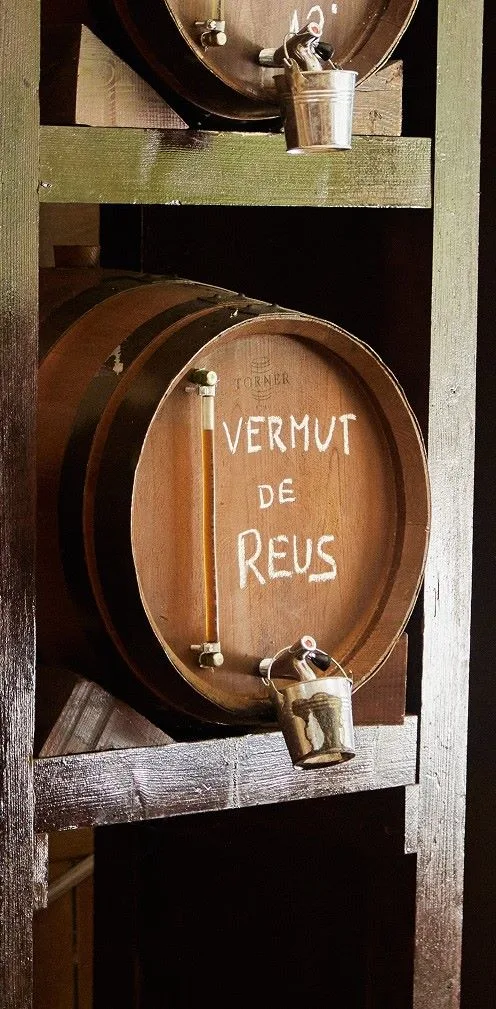 12°
TORNER
VERMUT
DE
REUS